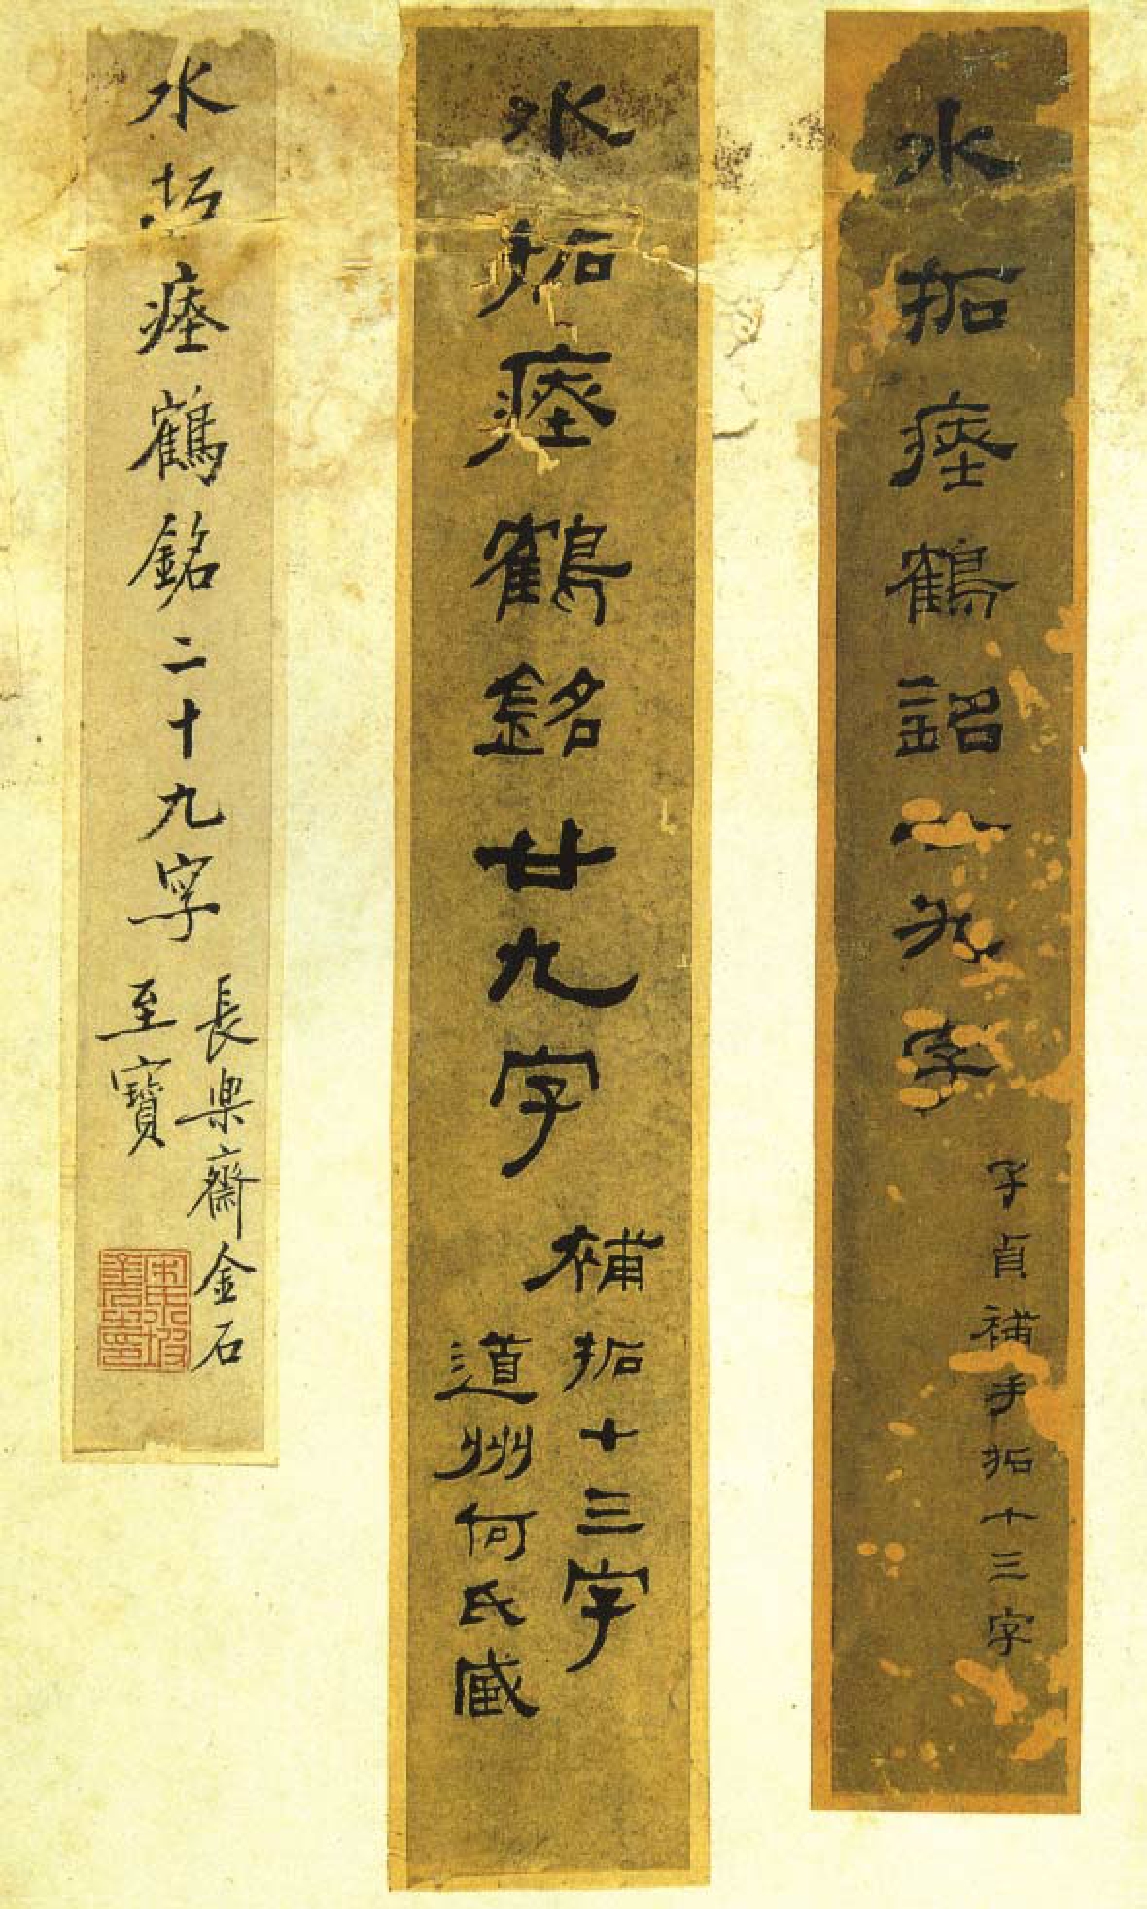 水拓瘞鶴銘廿九字
子貞補手拓十三字
水拓瘞鶴銘廿九字
補拓十三字
道州何氏臧
水拓瘞鶴銘二十九字
長樂齋金石
至寶